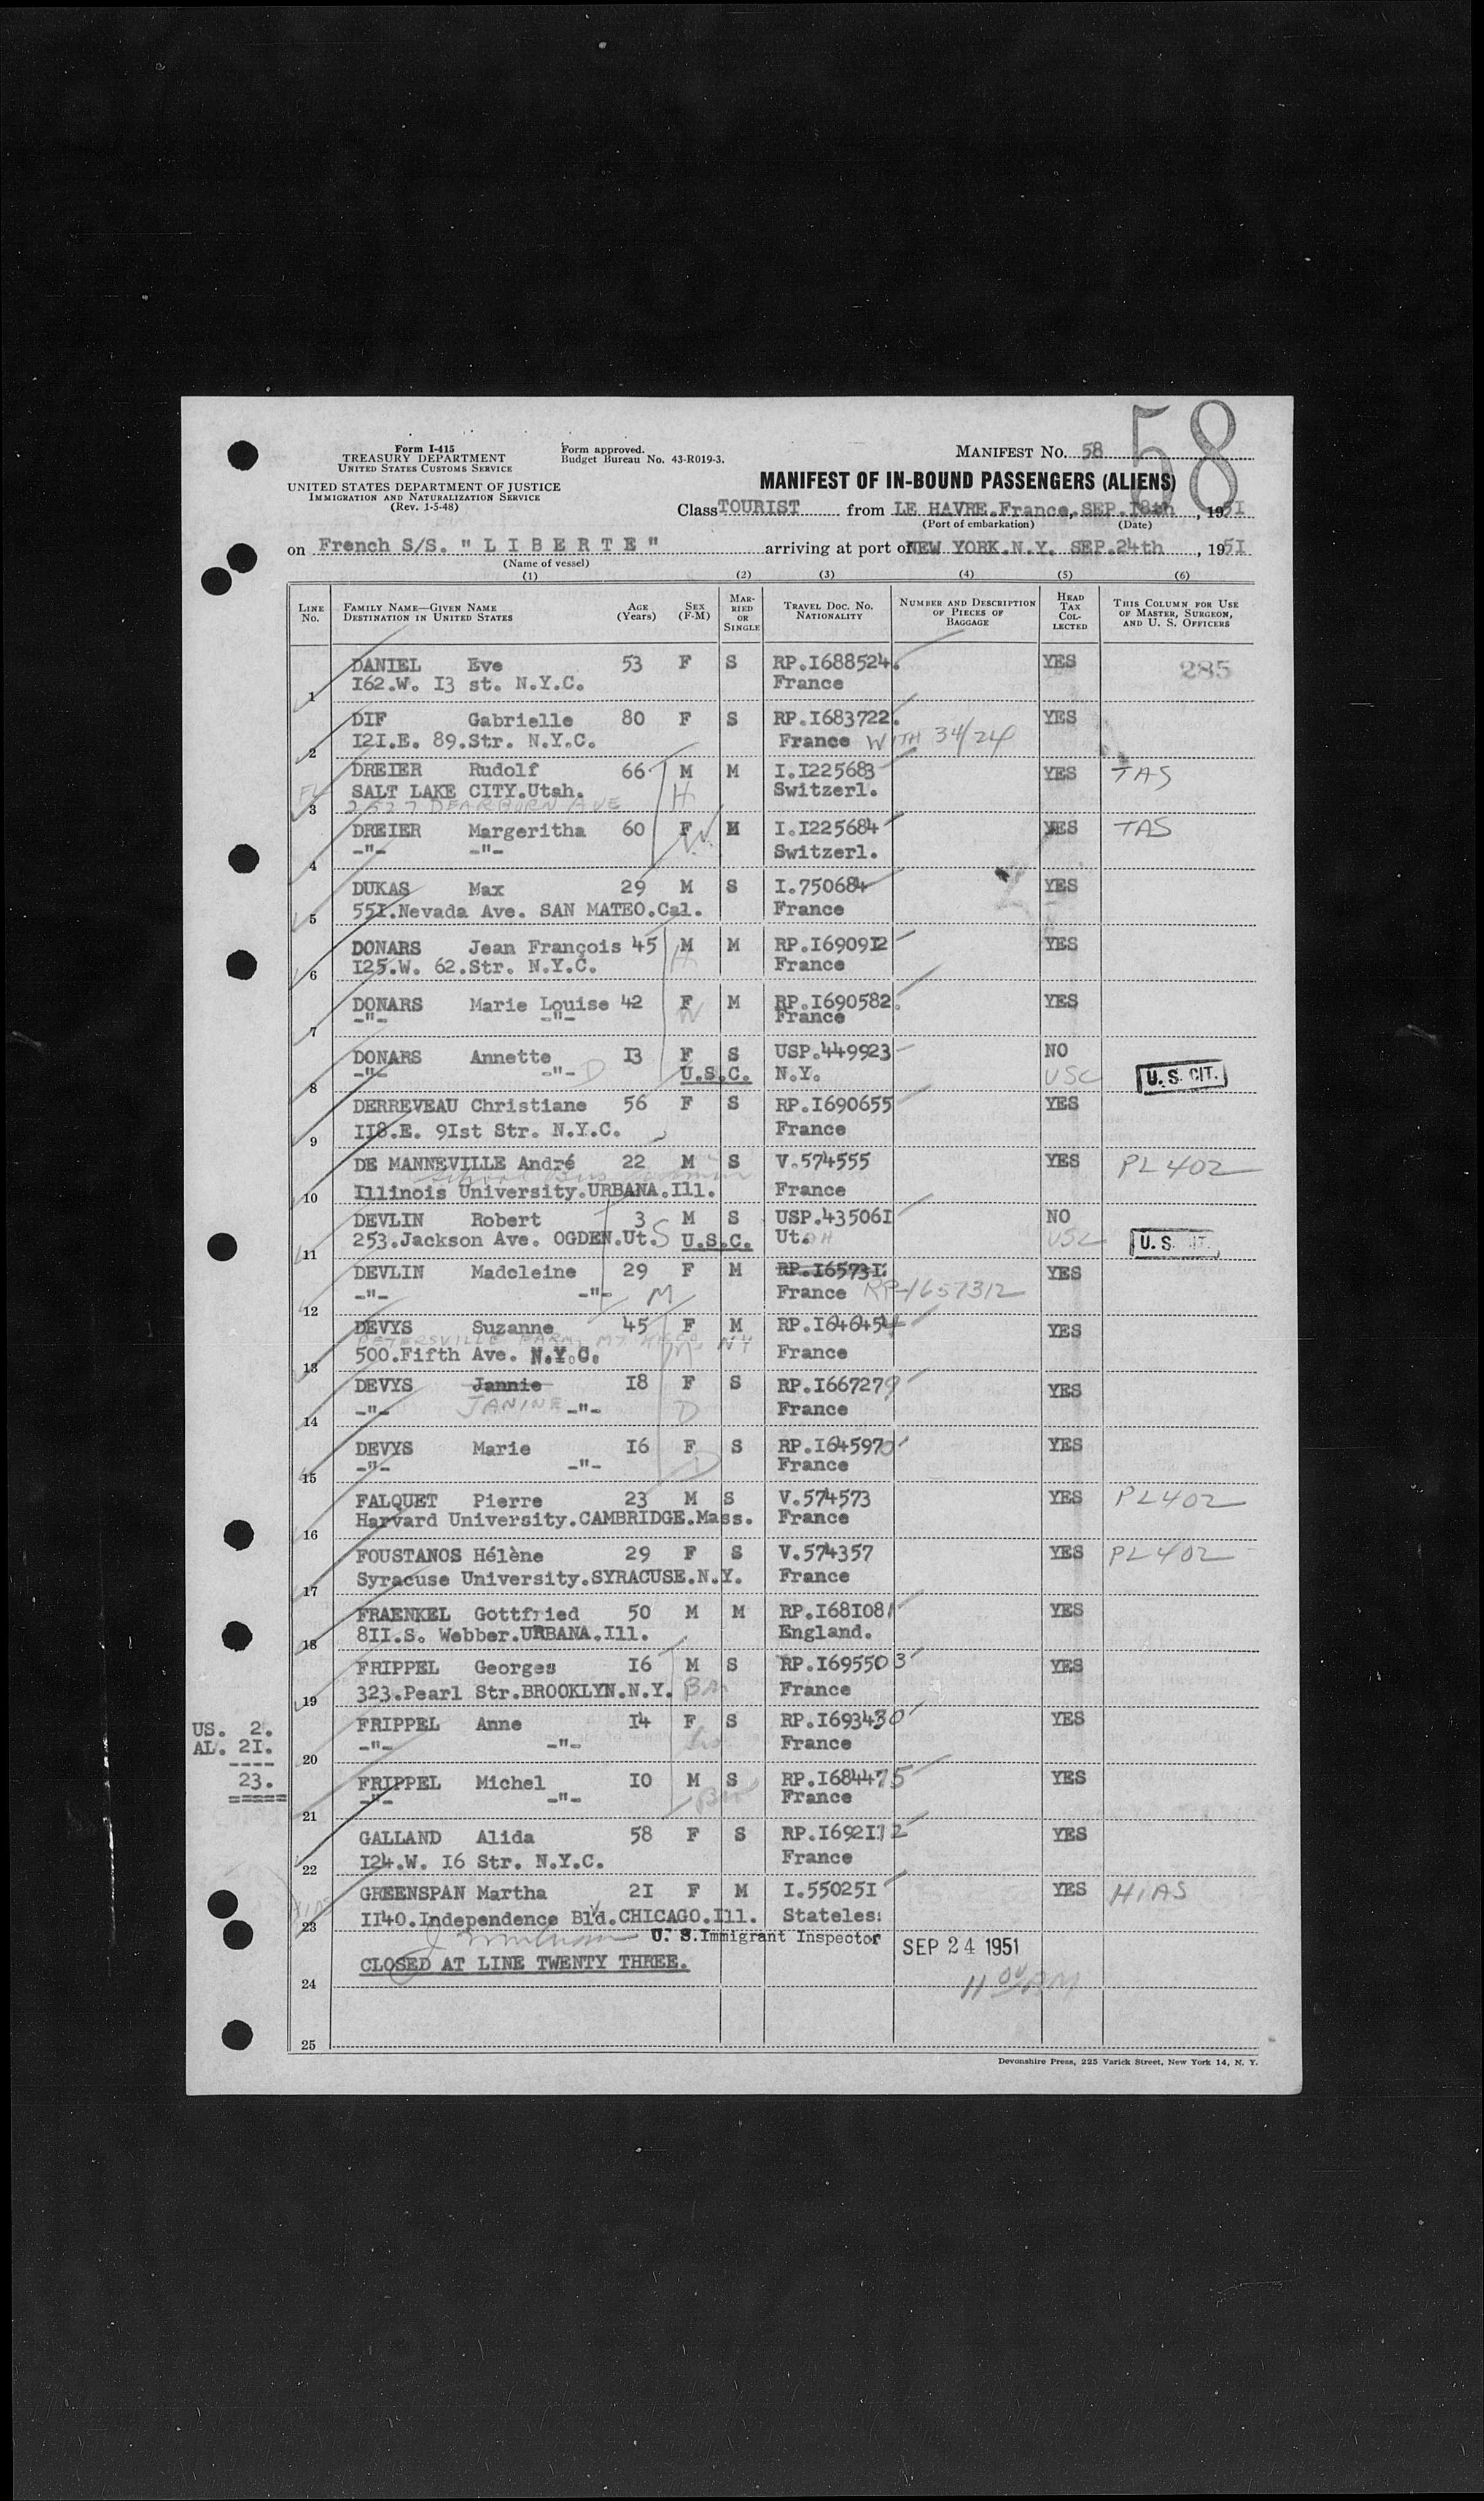 58
Form I-415
TREASURY DEPARTMENT
UNITED STATES CUSTOMS SERVICE
UNITED STATES DEPARTMENT OF JUSTICE
IMMIGRATION AND NATURALIZATION SERVICE
(Rev. 1-5-48)
Form approved.
Budget Bureau No. 43-R019-3.
MANIFEST No. 58
MANIFEST OF IN-BOUND PASSENGERS (ALIENS)
Class TOURIST from LE HAVRE.France, SEP.18th, 1951
(Port of embarkation) (Date)
on French S/S. " L I B E R T E " arriving at port of NEW YORK.N.Y. SEP.24th, 1951
(Name of vessel)
(1) (2) (3) (4) (5) (6)
LINE No. FAMILY NAME—GIVEN NAME DESTINATION IN UNITED STATES AGE (Years) SEX (F-M) MARRIED OR SINGLE TRAVEL DOC. No. NATIONALITY NUMBER AND DESCRIPTION OF PIECES OF BAGGAGE HEAD TAX COLLECTED THIS COLUMN FOR USE OF MASTER, SURGEON, AND U. S. OFFICERS
DANIEL Eve 53 F S RP.I688524. YES 285
1 I62.W. I3 st. N.Y.C. France
DIF Gabrielle 80 F S RP.I683722. YES
2 I2I.E. 89.Str. N.Y.C. France WITH 34/24
DREIER Rudolf 66 M M I.I225683 YES TAS
SALT LAKE CITY.Utah. H Switzerl.
3 2527 DEARBORN AVE
DREIER Margeritha 60 F M I.I225684 YES TAS
4 -"- -"- W Switzerl.
DUKAS Max 29 M S I.750684 YES
5 55I.Nevada Ave. SAN MATEO.Cal. France
DONARS Jean François 45 M M RP.I6909I2 YES
6 I25.W. 62.Str. N.Y.C. H France
DONARS Marie Louise 42 F M RP.I690582. YES
7 -"- -"- W France
DONARS Annette I3 F S USP.449923 NO
8 -"- -"- D U.S.C. N.Y. USC U. S. CIT.
DERREVEAU Christiane 56 F S RP.I690655 YES
9 II8.E. 9Ist Str. N.Y.C. France
DE MANNEVILLE André 22 M S V.574555 YES PL 402
10 Illinois University.URBANA.Ill. France
DEVLIN Robert 3 M S USP.43506I NO
11 253.Jackson Ave. OGDEN.Ut. S U.S.C. Ut.AH USC U. S.
DEVLIN Madeleine 29 F M RP.I6573I. YES
12 -"- -"- M France RP-1657312
DEVYS Suzanne 45 F M RP.I646454 YES
PETERSVILLE FARM, MT KISCO NY
13 500.Fifth Ave. N.Y.C. M France
DEVYS Jannie I8 F S RP.I667279 YES
14 -"- JANINE -"- D France
DEVYS Marie I6 F S RP.I645970 YES
15 -"- -"- D France
FALQUET Pierre 23 M S V.574573 YES PL 402
16 Harvard University.CAMBRIDGE.Mass. France
FOUSTANOS Hélène 29 F S V.574357 YES PL 402
17 Syracuse University.SYRACUSE.N.Y. France
FRAENKEL Gottfried 50 M M RP.I68I081 YES
18 8II.S. Webber.URBANA.Ill. England.
FRIPPEL Georges I6 M S RP.I695503 YES
19 323.Pearl Str.BROOKLYN.N.Y. France
FRIPPEL Anne I4 F S RP.I693430 YES
20 -"- -"- France
FRIPPEL Michel I0 M S RP.I684475 YES
21 -"- -"- France
US. 2.
AL. 2I.
----
23.
=====
GALLAND Alida 58 F S RP.I692I12 YES
22 I24.W. I6 Str. N.Y.C. France
GREENSPAN Martha 2I F M I.55025I YES HIAS
23 II40.Independence Blvd.CHICAGO.Ill. Stateles:
U. S. Immigrant Inspector SEP 24 1951
CLOSED AT LINE TWENTY THREE.
24 11 00 AM
25
Devonshire Press, 225 Varick Street, New York 14, N. Y.